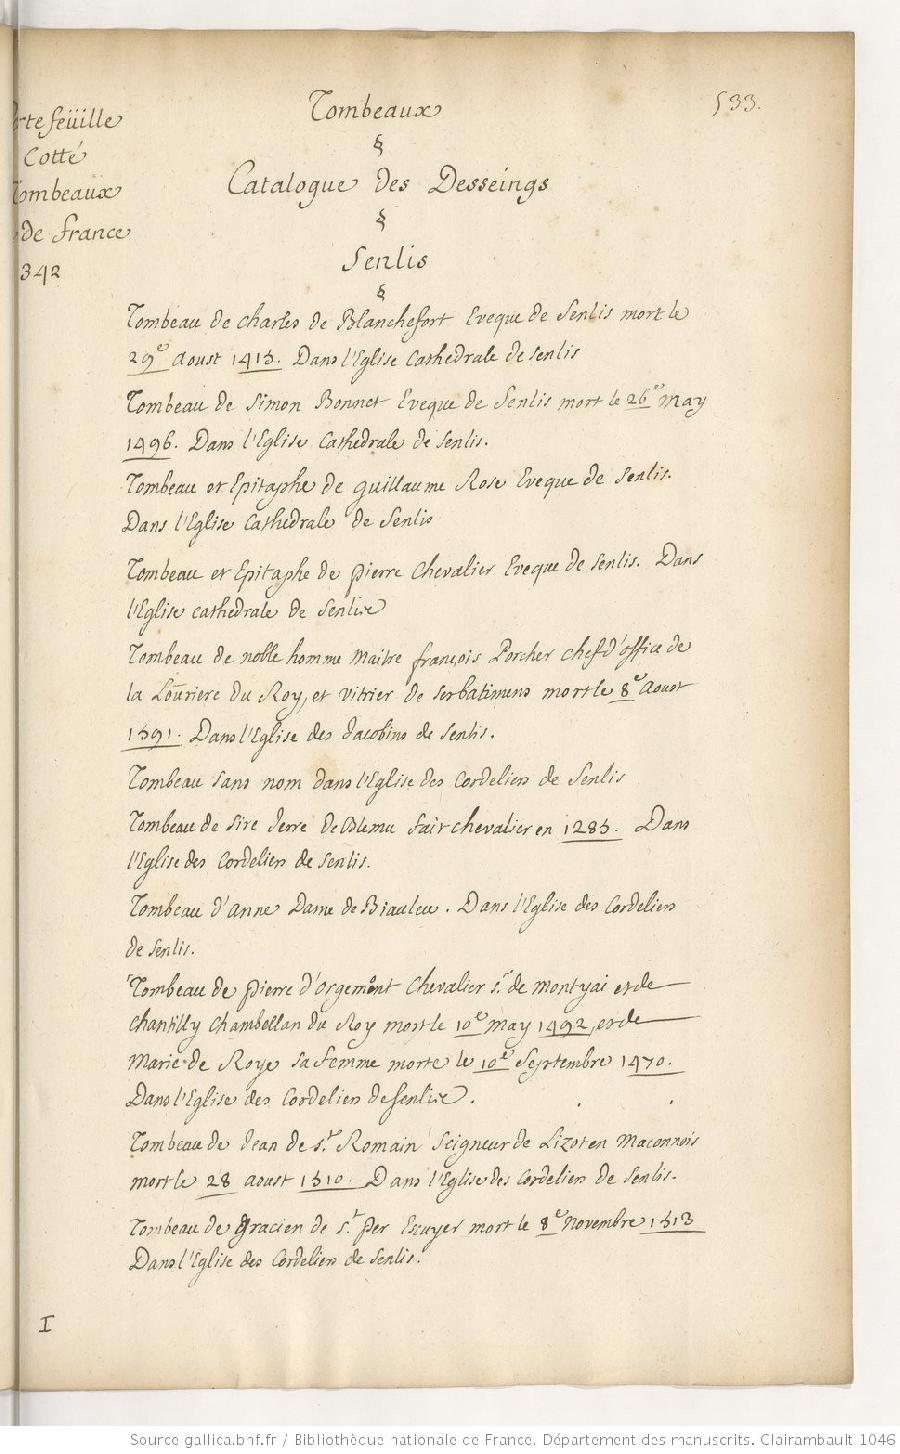 533.
Tombeaux
§
Catalogue des Desseings
§
Senlis
§
rtefeüille
Cotté
Tombeaux
de france
342
Tombeau de charles de Blanchefort Eveque de Senlis mort le
29e aoust 1415. Dans l'Eglise Cathedrale de Senlis
Tombeau de Simon Bonnet Eveque de Senlis mort le 26e May
1496. Dans l'Eglise Cathedrale de Senlis.
Tombeau et Epitaphe de guillaume Rose Eveque de Senlis.
Dans l'Eglise Cathedrale de Senlis
Tombeau et Epitaphe de pierre Chevalier Eveque de Senlis. Dans
l'Eglise cathedrale de Senlis
Tombeau de noble homme Maitre françois Porcher chef d'office de
la du Roy, et vitrier de ses batimens mort le 8e aoust
1591. Dans l'Eglise des Jacobins de Senlis.
Tombeau sans nom dans l'Eglise des Cordeliers de Senlis
Tombeau de Sire fait chevalier en 1285. Dans
l'Eglise des Cordeliers de Senlis.
Tombeau d'anne Dame de Biauleu. Dans l'Eglise des Cordeliers
de Senlis.
Tombeau de pierre d'orgemont Chevalier Sr. de Montyai et de
Chantilly Chambellan du Roy mort le 10e May 1492, et de
Marie de Roye sa femme morte le 10e Septembre 1470.
Dans l'Eglise des Cordeliers de Senlis.
Tombeau de Jean de St. Romain Seigneur de Lizot en Maconnois
mort le 28 aoust 1510. Dans l'Eglise des Cordeliers de Senlis.
Tombeau de gracien de St. per Escuyer mort le 8e Novembre 1513
Dans l'Eglise des Cordeliers de Senlis.
I
Source gallica.bnf.fr / Bibliothèque nationale de France. Département des manuscrits. Clairambault 1046